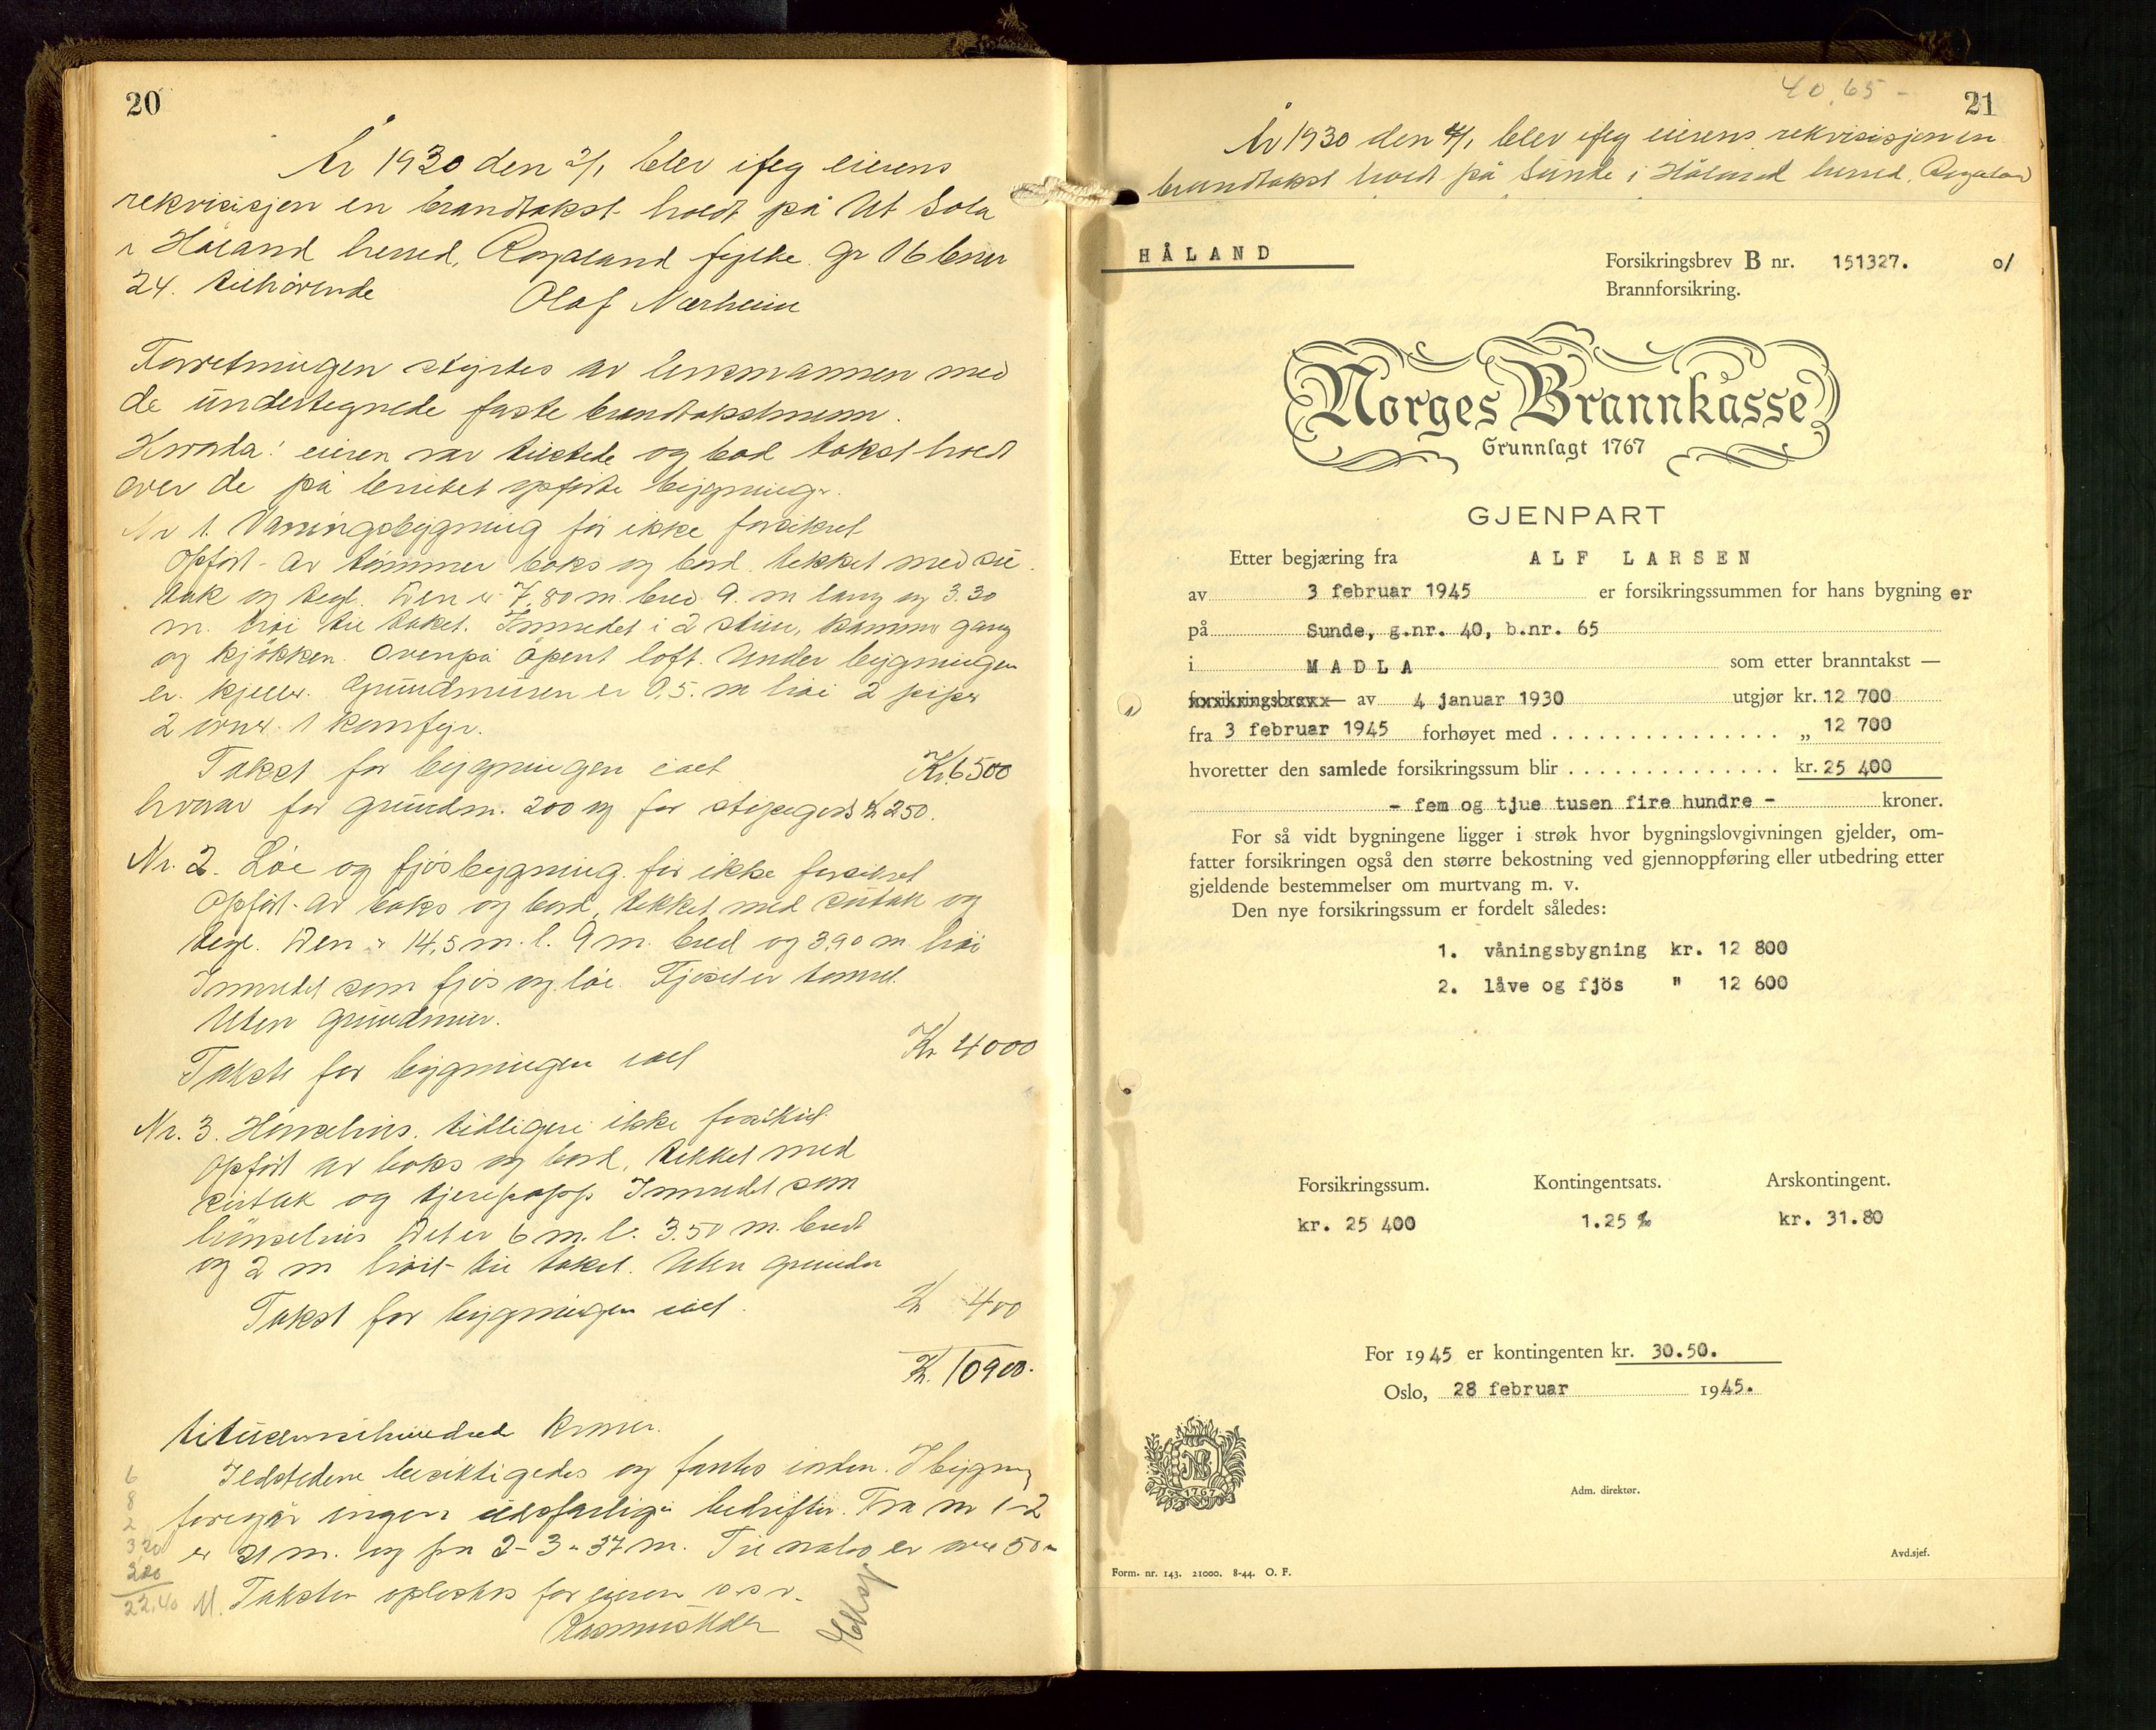 20
År 1930 den 2/1 blev ifølg eierens
rekvisisjon en brandtakst holdt på Ut Sola
i Håland herred, Rogaland fylke. Gr 16 bnr
24. tilhørende
Olaf Nærheim
Forretningen styrtes av lensmannen med
de undertegnede faste brandtakstmenn.
eieren var tilstede og bad takst holdt
over de på bruket opførte bygninger.
Nr 1. Vaningsbygning før ikke forsikret
Opført av tømmer boks og bord tekket med su
tak og tegl. Den er 7,80 m bred 9. m lang og 3.30
m. høi til taket. Innredet i 2 stuer, kammer gang
og kjøkken. Ovenpå åpent loft. Under bygningen
er kjeller. Grundmuren er 0.5. m høi 2 piper
2 ovner 1 komfyr.
Takst for bygningen ialt Kr. 6500
hvorav for grundm. 200 og for stipegods kr 250.
Nr. 2. Løe og fjøsbygning før ikke forsikret
Opført av boks og bord, tekket med sutak og
tegl. Den er 14,5 m. l. 9 m. bred og 3.90 m høi
Innredet som fjøs og løe. Fjøset er tømret.
Uten grundmur.
Takst for bygningen ialt Kr 4000
Nr. 3. Hønsehus. tidligere ikke forsikret
Opført av boks og bord, tekket med
sutak og tjerepapp Innredet som
hønsehus Det er 6 m. l. 3.50 m. bredt
og 2 m høit til taket. Uten grundm
Takst for bygningen ialt Kr 400
Kr. 10900.
titusennihundred kroner.
Ildstedene besiktigedes og fantes iorden. I bygning
foregår ingen ildsfarlige bedrifter. Fra nr 1-2
er 21 m. og fra 2-3 - 37 m. Til nabo er over 50 m
Taksten oplestes for eieren o.s.v.
6
8
2
320
320
22,40
40,65 -
21
År 1930 den 4/1 blev ifølg eierens rekvisisjon en
brandtakst holdt på Sunde i Håland herred, Rogaland
HÅLAND
Forsikringsbrev B nr. 151327. o/
Brannforsikring.
Norges Brannkasse
Grunnlagt 1767
GJENPART
Etter begjæring fra ALF LARSEN
av 3 februar 1945 er forsikringssummen for hans bygning er
på Sunde, g.nr. 40, b.nr. 65
i MADLA som etter branntakst —
forsikringsbrev av 4 januar 1930 utgjør kr. 12 700
fra 3 februar 1945 forhøyet med . . . . . . . . . . . . . . . . „ 12 700
hvoretter den samlede forsikringssum blir . . . . . . . . . . . . . . . kr. 25 400
- fem og tjue tusen fire hundre - kroner.
For så vidt bygningene ligger i strøk hvor bygningslovgivningen gjelder, om-
fatter forsikringen også den større bekostning ved gjennoppføring eller utbedring etter
gjeldende bestemmelser om murtvang m. v.
Den nye forsikringssum er fordelt således:
1. våningsbygning kr. 12 800
2. låve og fjös " 12 600
Forsikringssum. Kontingentsats. Årskontingent.
kr. 25 400 1.25 ‰ kr. 31.80
For 1945 er kontingenten kr. 30.50.
Oslo, 28 februar 1945.
NB
1767
Adm. direktør.
Avd.sjef.
Form. nr. 143. 21000. 8-44. O. F.